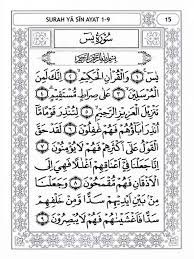 SURAH YĀ SĪN AYAT 1-9 15
سُورَةُ يس
بِسْمِ اللَّهِ الرَّحْمَٰنِ الرَّحِيمِ
يسٓ ۝١ وَالْقُرْآنِ الْحَكِيمِ ۝٢ إِنَّكَ لَمِنَ
الْمُرْسَلِينَ ۝٣ عَلَىٰ صِرَاطٍ مُّسْتَقِيمٍ ۝٤
تَنزِيلَ الْعَزِيزِ الرَّحِيمِ ۝٥ لِتُنذِرَ قَوْمًا
مَّا أُنذِرَ آبَاؤُهُمْ فَهُمْ غَافِلُونَ ۝٦ لَقَدْ حَقَّ
الْقَوْلُ عَلَىٰ أَكْثَرِهِمْ فَهُمْ لَا يُؤْمِنُونَ ۝٧
إِنَّا جَعَلْنَا فِي أَعْنَاقِهِمْ أَغْلَالًا فَهِيَ إِلَى
الْأَذْقَانِ فَهُم مُّقْمَحُونَ ۝٨ وَجَعَلْنَا
مِن بَيْنِ أَيْدِيهِمْ سَدًّا وَمِنْ خَلْفِهِمْ
سَدًّا فَأَغْشَيْنَاهُمْ فَهُمْ لَا يُبْصِرُونَ ۝٩